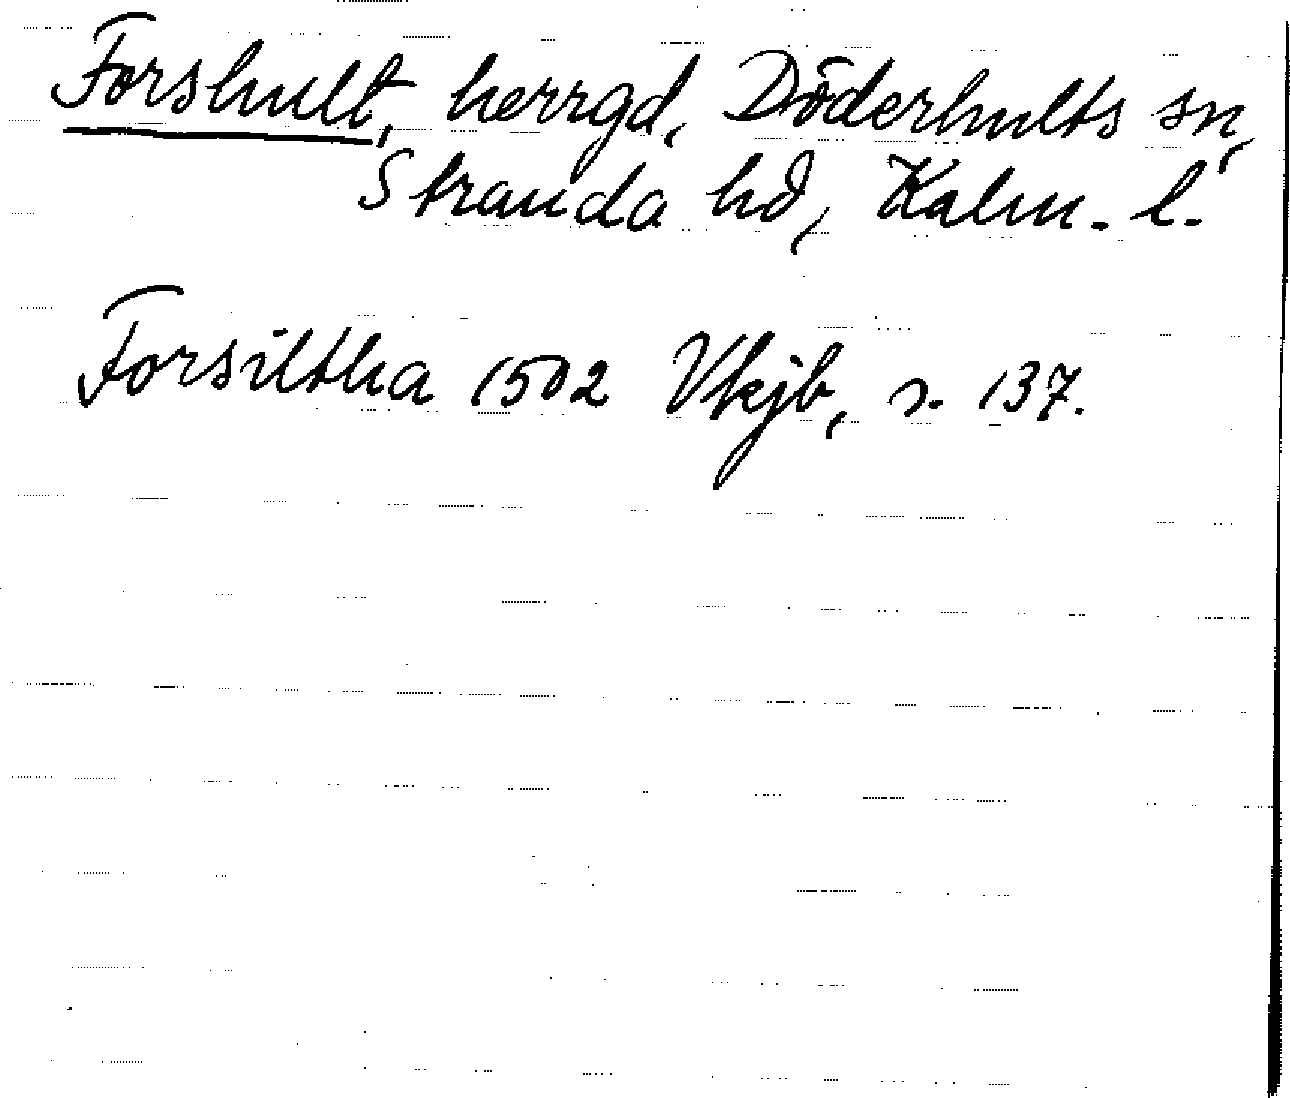 Forshult, herrgd, Döderhults sn,
Stranda hd, Kalm. l.
Forsiltha 1502 Vkjb, s. 137.